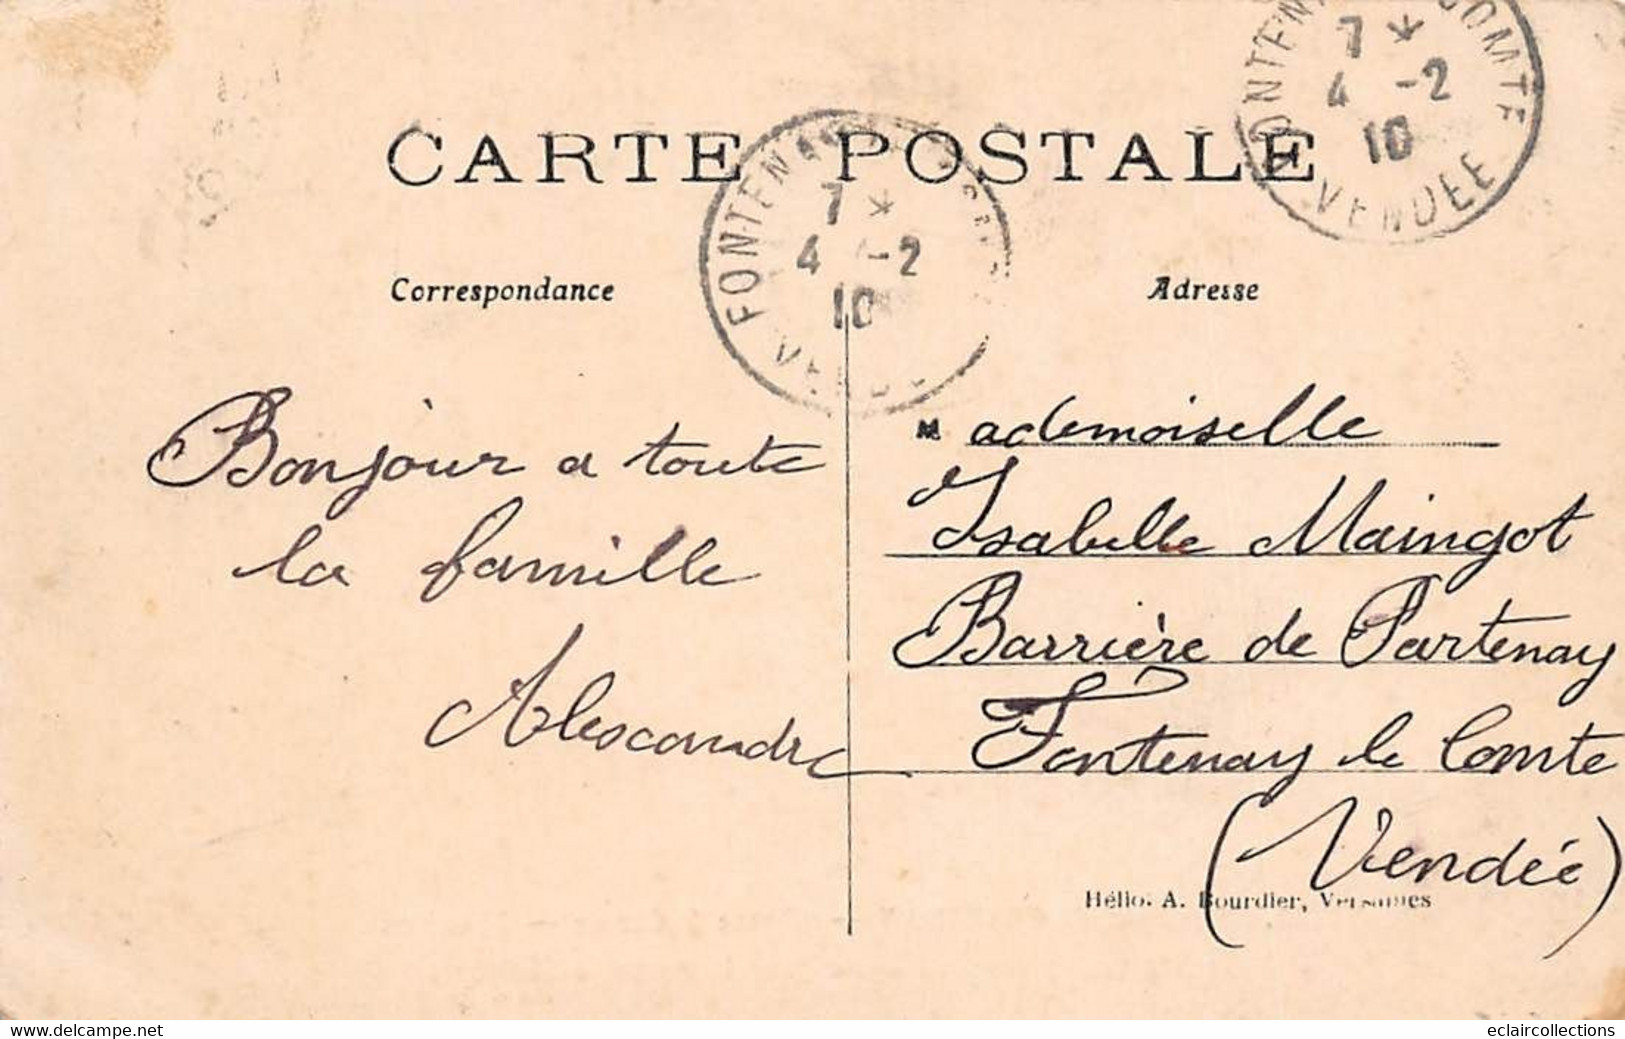 CARTE POSTALE
7 *
4 -2
10
VENDEE
FONTENAY
7 *
4 -2
10
Correspondance
Adresse
Bonjour a toute
la famille
Alexandre
Mademoiselle
Isabelle Maingot
Barrière de Partenay
Fontenay le Comte
(Vendée)
Hélio. A. Bourdier, Versailles
www.delcampe.net
eclaircollections